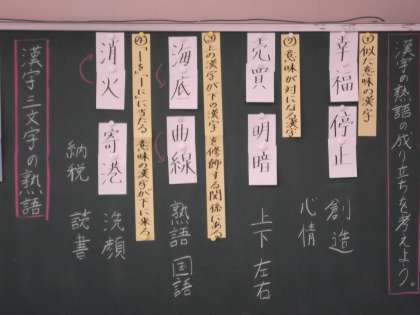 漢字の熟語の成り立ちを考えよう。
(1)似た意味の漢字
幸福
停止
創造
心情
(2)意味が対になる漢字
売買
明暗
上下 左右
(3)上の漢字が下の漢字を修飾する関係にある
海底
曲線
熟語 国語
(4)「-を」「-に」に当たる意味の漢字が下に来る
消火
寄港
洗顔
納税
読書
漢字三文字の熟語